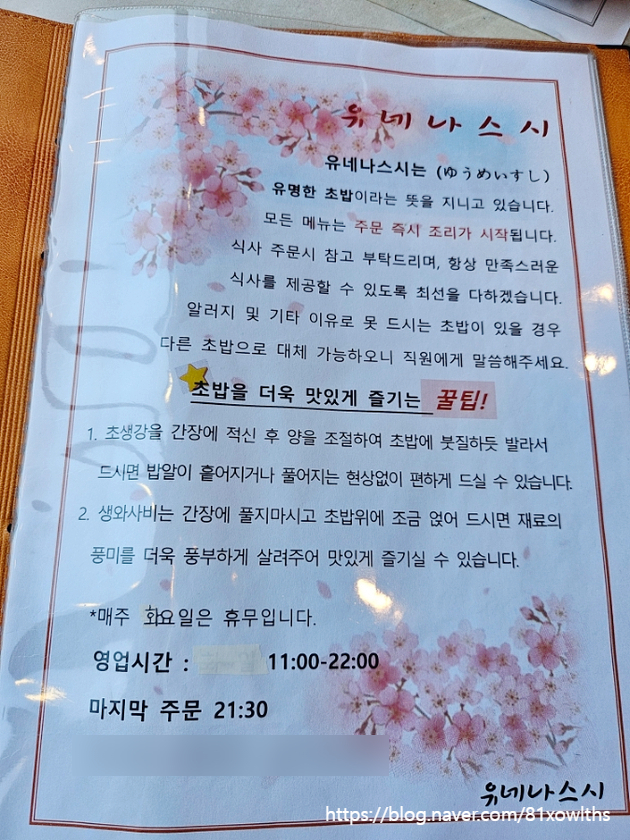 유네나스시
유네나스시는 (ゆうめいすし)
유명한 초밥이라는 뜻을 지니고 있습니다.
모든 메뉴는 주문 즉시 조리가 시작됩니다.
식사 주문시 참고 부탁드리며, 항상 만족스러운
식사를 제공할 수 있도록 최선을 다하겠습니다.
알러지 및 기타 이유로 못 드시는 초밥이 있을 경우
다른 초밥으로 대체 가능하오니 직원에게 말씀해주세요.
초밥을 더욱 맛있게 즐기는 꿀팁!
1. 초생강을 간장에 적신 후 양을 조절하여 초밥에 붓질하듯 발라서
드시면 밥알이 흩어지거나 풀어지는 현상없이 편하게 드실 수 있습니다.
2. 생와사비는 간장에 풀지마시고 초밥위에 조금 얹어 드시면 재료의
풍미를 더욱 풍부하게 살려주어 맛있게 즐기실 수 있습니다.
*매주 화요일은 휴무입니다.
영업시간 : 11:00-22:00
마지막 주문 21:30
유네나스시
https://blog.naver.com/81xowlths